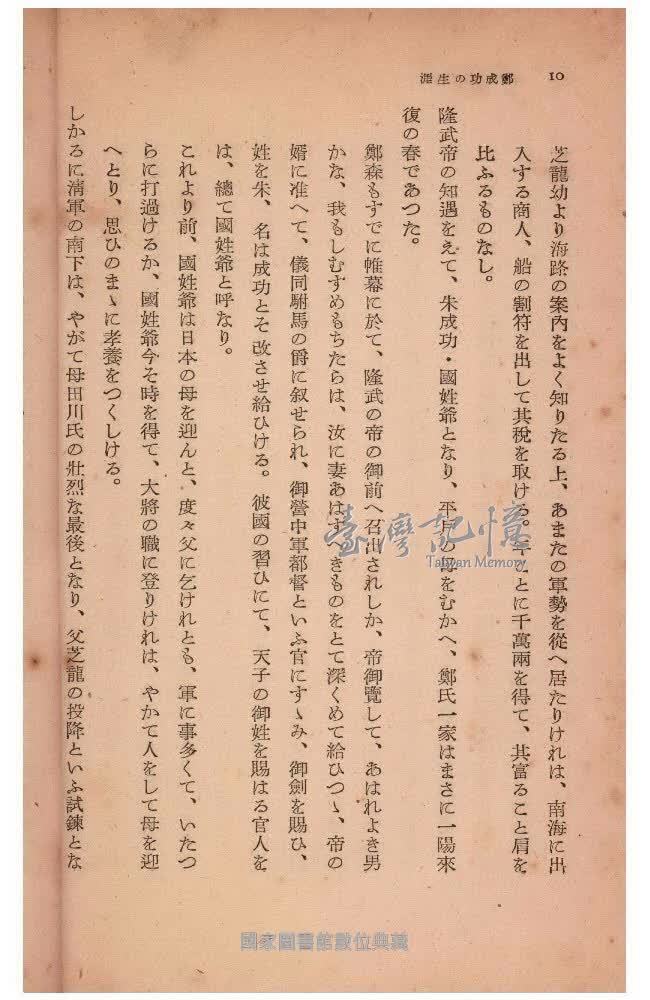 10
鄭成功の生涯
芝龍幼より海路の案內をよく知りたる上、あまたの軍勢を從へ居たりけれは、南海に出
入する商人、船の割符を出して其稅を取ける。年ことに千萬兩を得て、其富ること肩を
比ふるものなし。
隆武帝の知遇をえて、朱成功・國姓爺となり、平戶の母をむかへ、鄭氏一家はまさに一陽來
復の春であつた。
鄭森もすでに帷幕に於て、隆武の帝の御前へ召出されしか、帝御覽して、あはれよき男
かな、我もしむすめもちたらは、汝に妻あはすへきものをとて深くめて給ひつゝ、帝の
婿に准へて、儀同駙馬の爵に叙せられ、御營中軍都督といふ官にすゝみ、御劍を賜ひ、
姓を朱、名は成功とそ改させ給ひける。彼國の習ひにて、天子の御姓を賜はる官人を
は、總て國姓爺と呼なり。
これより前、國姓爺は日本の母を迎んと、度々父に乞けれとも、軍に事多くて、いたつ
らに打過けるか、國姓爺今そ時を得て、大將の職に登りけれは、やかて人をして母を迎
へとり、思ひのまゝに孝養をつくしける。
しかるに淸軍の南下は、やがて母田川氏の壯烈な最後となり、父芝龍の投降といふ試鍊とな
臺灣記憶
Taiwan Memory
國家圖書館數位典藏